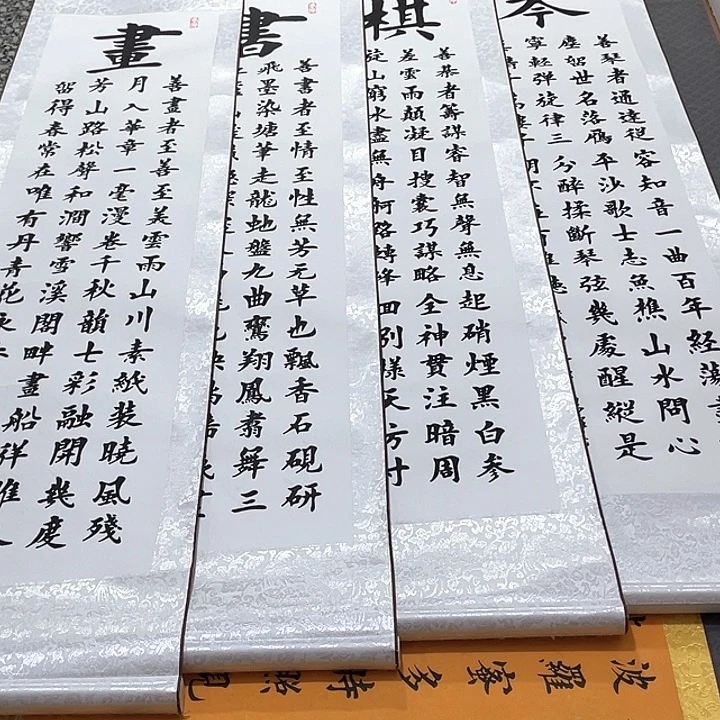 善琴者通達從容知音一曲百年經蕩
塵留世名落雁平沙歌士志魚樵山水問心
寧輕彈旋律三分醉揉斷琴弦幾處醒縱是
棋
善棊者籌謀睿智無聲無息起硝煙黑白参
差雲雨顛凝目搜囊巧謀略全神貫注暗周
旋山窮水盡無舟舸路轉峰回別樣天方寸
書
善書者至情至性無芳无草也飄香石硯研
飛墨染塘筆走龍虵盤九曲鸞翔鳳翥舞三
畫
善畫者至善至美雲雨山川素紙装曉風殘
月入華章一毫漫卷千秋韻七彩融開幾度
芳山路松聲和澗響雪溪閣畔畫船祥
留得春常在唯有丹青花
波羅蜜多時照見